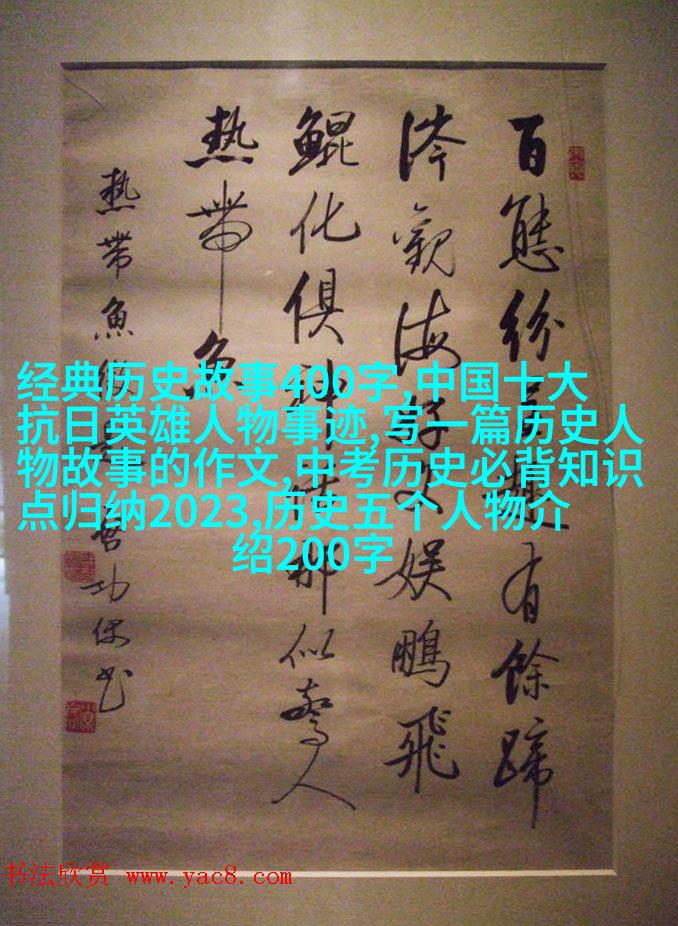 百態紛有餘蹄
涔觀海好文娱鵬飛
鯤化俱神話那似驚人
熱帶魚
熱帶魚 功 书
经典历史故事400字,中国十大
抗日英雄人物事迹,写一篇历史人
物故事的作文,中考历史必背知识
点归纳2023,历史五个人物介
绍200字
书法欣赏 www.yac8.com